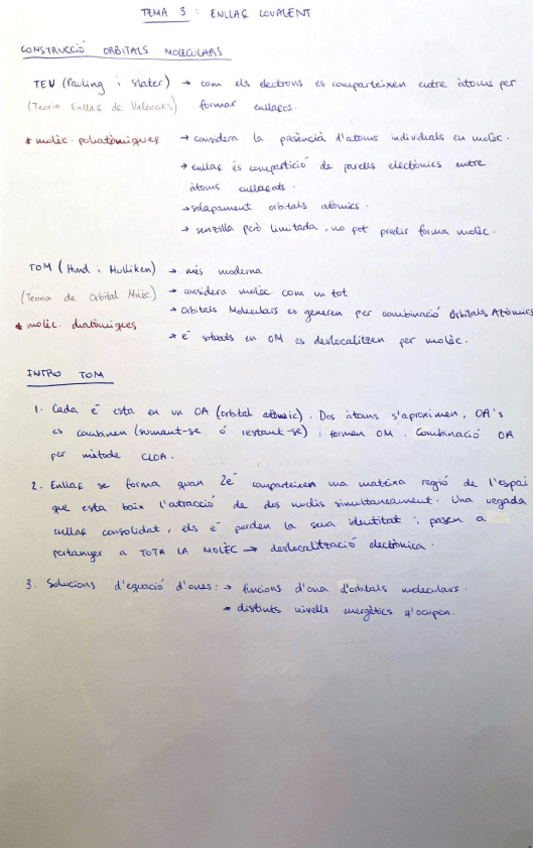 TEMA 3 : ENLLAÇ COVALENT
CONSTRUCCIÓ ORBITALS MOLECULARS
TEV (Pauling i Slater) → com els electrons es comparteixen entre àtoms per
(Teoria Enllaç de Valències) formar enllaços.
* molèc. poliatòmiques → considera la presència d'atoms individuals en molèc.
→ enllaç és compartició de parells electrònics entre
àtoms enllaçats.
→ solapament orbitals atòmics.
→ senzilla però limitada, no pot predir forma molèc.
TOM (Hund i Mulliken) → més moderna
(Teoria de Orbital Molèc.) → considera molèc. com un tot
→ Orbitals Moleculars es generen per combinació Orbitals Atòmics
* molèc. diatòmiques
→ e⁻ situats en OM es deslocalitzen per molèc.
INTRO TOM
1. Cada e⁻ esta en un OA (orbital atòmic). Dos àtoms s'aproximen, OA's
es combinen (sumant-se ó restant-se) i formen OM. Combinació OA
per mètode CLOA.
2. Enllaç se forma quan 2e⁻ comparteixen una mateixa regió de l'espai
que esta baix l'atracció de dos nuclis simultaneament. Una vegada
enllaç consolidat, els e⁻ perden la seua identitat i pasen a
pertanyer a TOTA LA MOLÈC → deslocalització electrònica.
3. Solucions d'equació d'ones: → funcions d'ona d'orbitals moleculars.
→ distints nivells energètics q'ocupen.